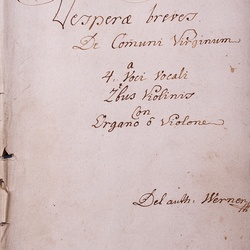 Vesperæ breves
De Comuni Virginum
a
4. Voci Vocali
2bus Violinis
Con
Organo ô Violone
Del auth. Werner